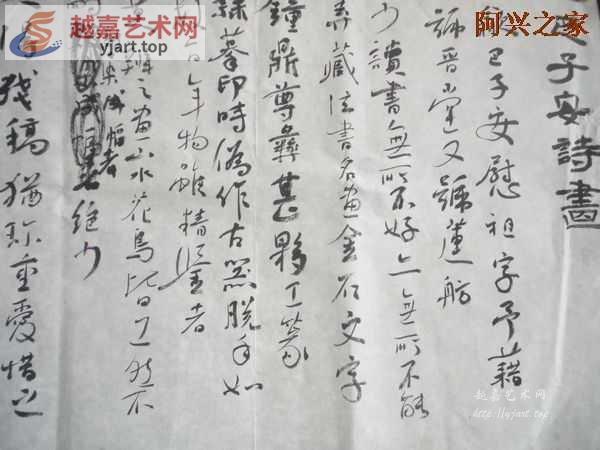 越嘉艺术网
yjart.top
阿兴之家
子安詩畫
巳子安慰祖字予藉
號晋堂又號蓮舫
少讀書無所不好亦無所不能
弆藏法書名畫金石文字
鐘鼎尊彝甚夥工篆
隸摹印時偽作古器脱手如
百年物雖精鑒者
之畫山水花鳥皆工然不
成幅者
絶少
殘稿猶珍重愛惜之
越嘉艺术网
http://yjart.top